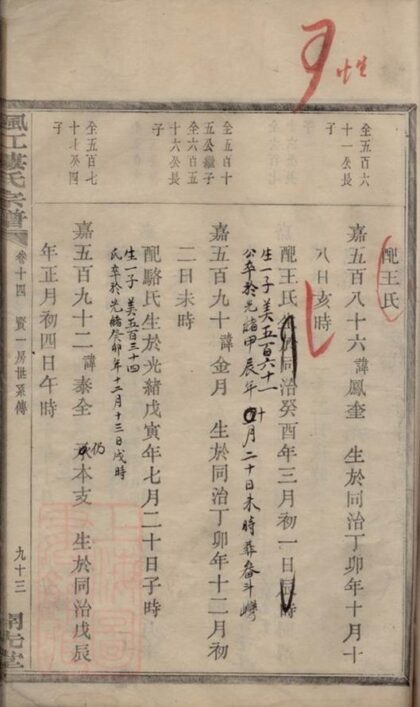 仝五百六
十一公長
子
配王氏
嘉五百八十六 諱鳳奎 生於同治丁卯年十月十
八日亥時
仝五百十
五公繼子
仝六百五
十六公長
子
配王氏於同治癸酉年三月初一日時
生一子 美五百六十一
公卒於光緒甲辰年月二十日未時葬畚斗灣
嘉五百九十 諱金月 生於同治丁卯年十二月初
二日未時
配駱氏生於光緒戊寅年七月二十日子時
生一子 美五百三十四
氏卒於光緒癸卯年十二月十三日戌時
仝五百七
子
嘉五百九十二 諱泰全 仍承本支 生於同治戊辰
年正月初四日午時
氏宗譜
卷十四 賢一房世系傳
九十三